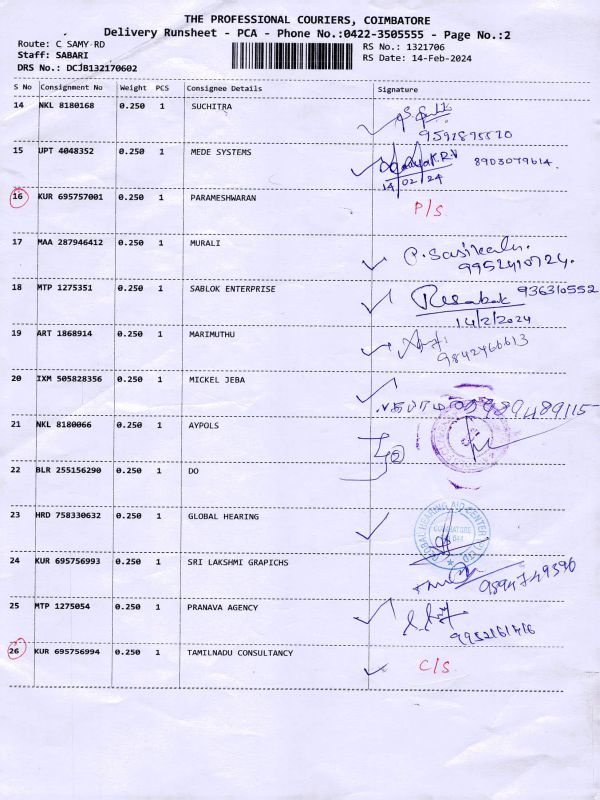 THE PROFESSIONAL COURIERS, COIMBATORE
Delivery Runsheet - PCA - Phone No.:0422-3505555 - Page No.:2
Route: C SAMY RD
RS No.: 1321706
Staff: SABARI
RS Date: 14-Feb-2024
DRS No.: DCJB132170602
S No Consignment No Weight PCS Consignee Details Signature
14 NKL 8180168 0.250 1 SUCHITRA
15 UPT 4048352 0.250 1 MEDE SYSTEMS 8903079614.
14/02/24
16 KUR 695757001 0.250 1 PARAMESHWARAN P/S
17 MAA 287946412 0.250 1 MURALI P. Sasikala.
9952410724.
18 MTP 1275351 0.250 1 SABLOK ENTERPRISE 936310552
14/2/2024
19 ART 1868914 0.250 1 MARIMUTHU
9842466613
20 IXM 505828356 0.250 1 MICKEL JEBA
989489115
21 NKL 8180066 0.250 1 AYPOLS
22 BLR 255156290 0.250 1 DO
23 HRD 758330632 0.250 1 GLOBAL HEARING
GLOBAL HEARING AID CENTER
COIMBATORE
24 KUR 695756993 0.250 1 SRI LAKSHMI GRAPICHS
9894749396
25 MTP 1275054 0.250 1 PRANAVA AGENCY
9952161416
26 KUR 695756994 0.250 1 TAMILNADU CONSULTANCY C/S